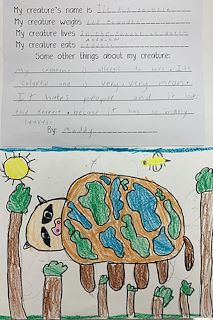 My creature's name is
My creature weighs
My creature lives In the forest of earth
My creature eats
Some other things about my creature:
My creature is allergic to water. Its
colorful and very, very mean.
It hates people and it likes
the forest because it has so many
leaves.
By: Maddy